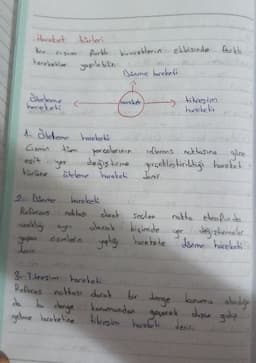 Hareket türleri
Bir cisim farklı kuvvetlerin etkisinde farklı
hareketler yapabilir.
Dönme hareketi
Öteleme
hareketi
hareket
titreşim
hareketi
1- Öteleme hareketi
Cismin tüm parçalarının referans noktasına göre
eşit yer değiştirme gerçekleştirdiği hareket
türüne öteleme hareketi denir.
2- Dönme hareketi
Referans noktası olarak seçilen nokta etrafında
olacak biçimde yer değiştirmeler
yapan cisimlerin yaptığı harekete dönme hareketi
denir.
3- Titreşim hareketi
Referans noktası olarak bir denge konumu
da bu denge konumundan geçerek gidip
gelme hareketine titreşim hareketi denir.